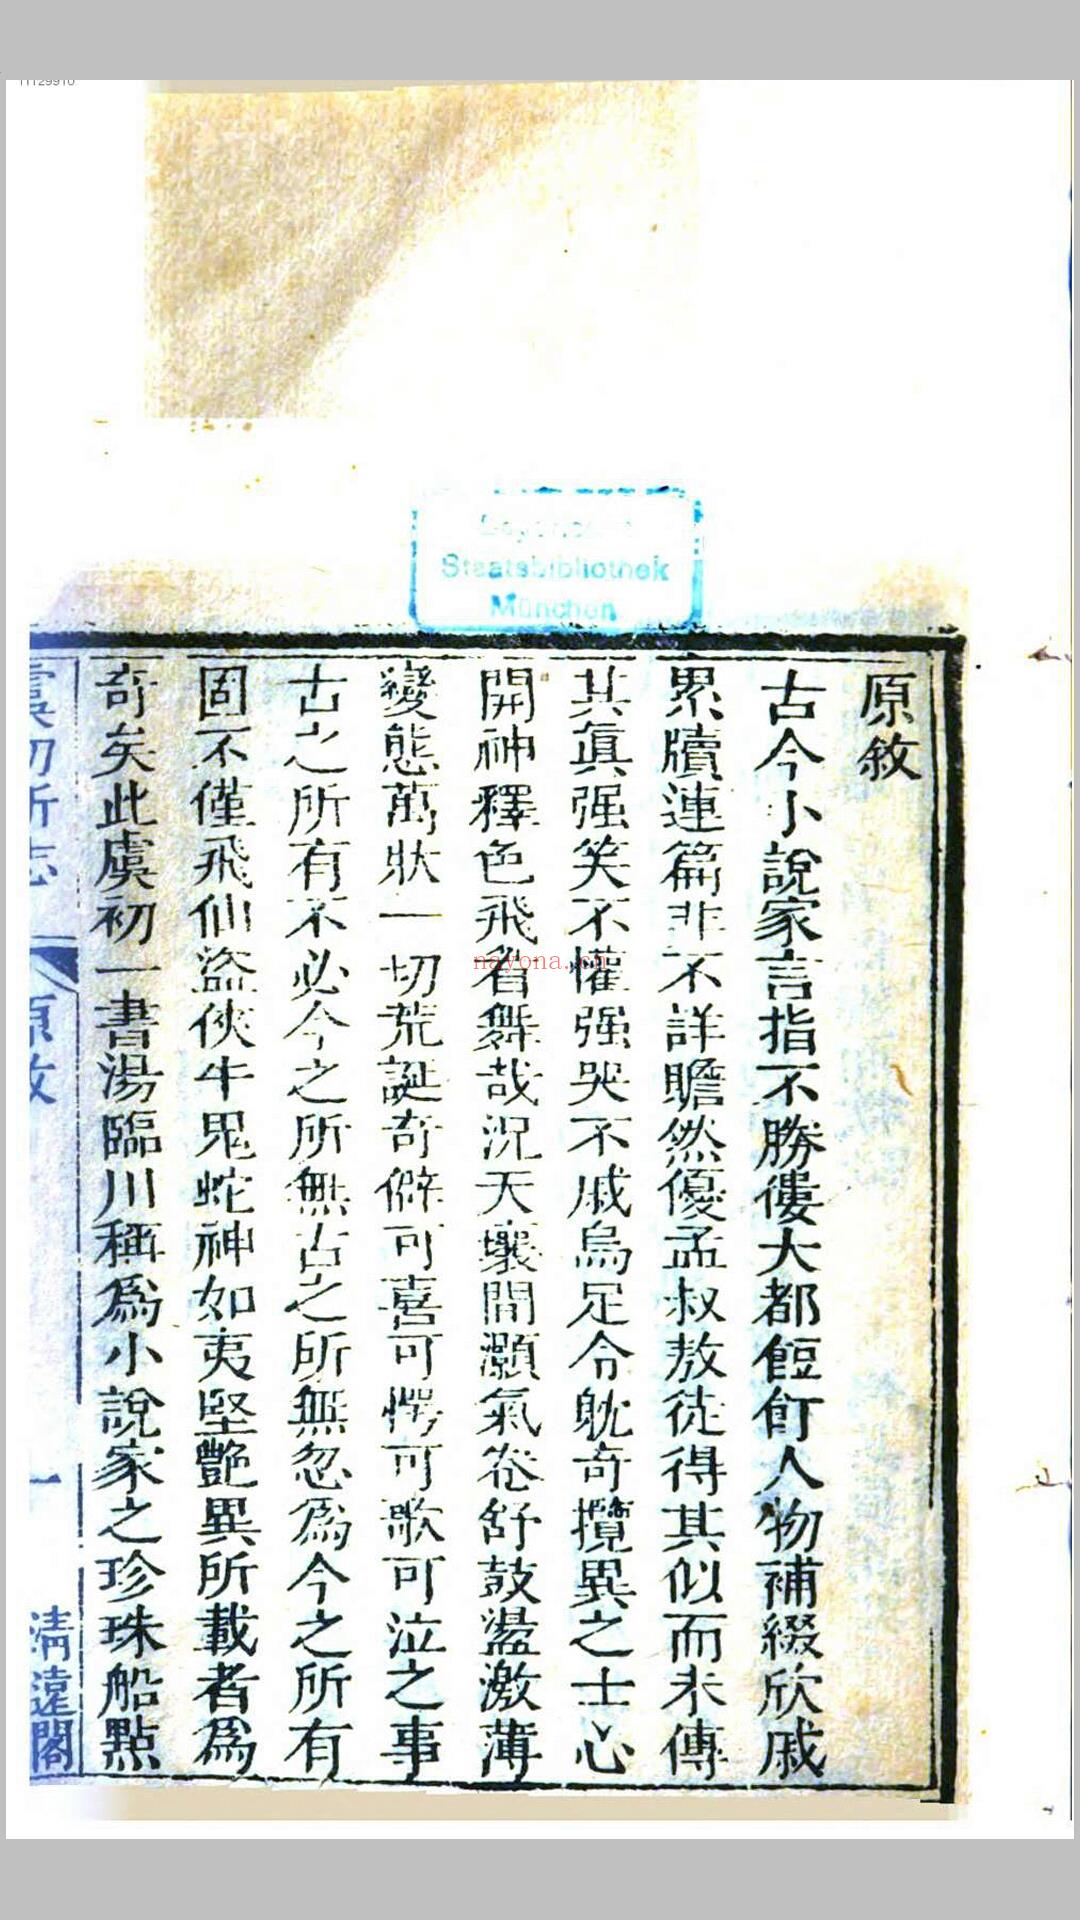 11129910
Staatsbibliothek
München
原敘
古今小說家言指不勝僂大都餖飣人物補綴欣戚
累牘連篇非不詳贍然優孟叔敖徒得其似而未傳
其眞强笑不懽强哭不戚烏足令耽奇攬異之士心
開神釋色飛眉舞哉況天壤間灝氣卷舒鼓盪激薄
變態萬狀一切荒誕奇僻可喜可愕可歌可泣之事
古之所有不必今之所無古之所無忽爲今之所有
固不僅飛仙盜俠牛鬼蛇神如夷堅艷異所載者爲
奇矣此虞初一書湯臨川稱爲小說家之珍珠船點
虞初新志
原敘
一
淸遠閣
nayona.cn